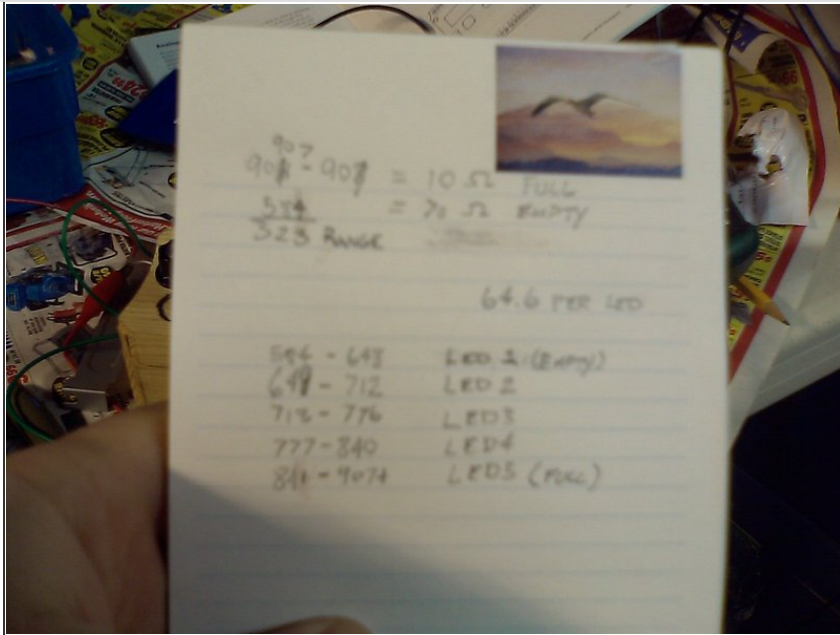 907
= 10 Ω FULL
584 = 70 Ω EMPTY
323 RANGE
64.6 PER LED
584 - 648 LED 1 (EMPTY)
- 712 LED 2
713 - 776 LED3
777 - 840 LED4
841 - 907+ LED5 (FULL)